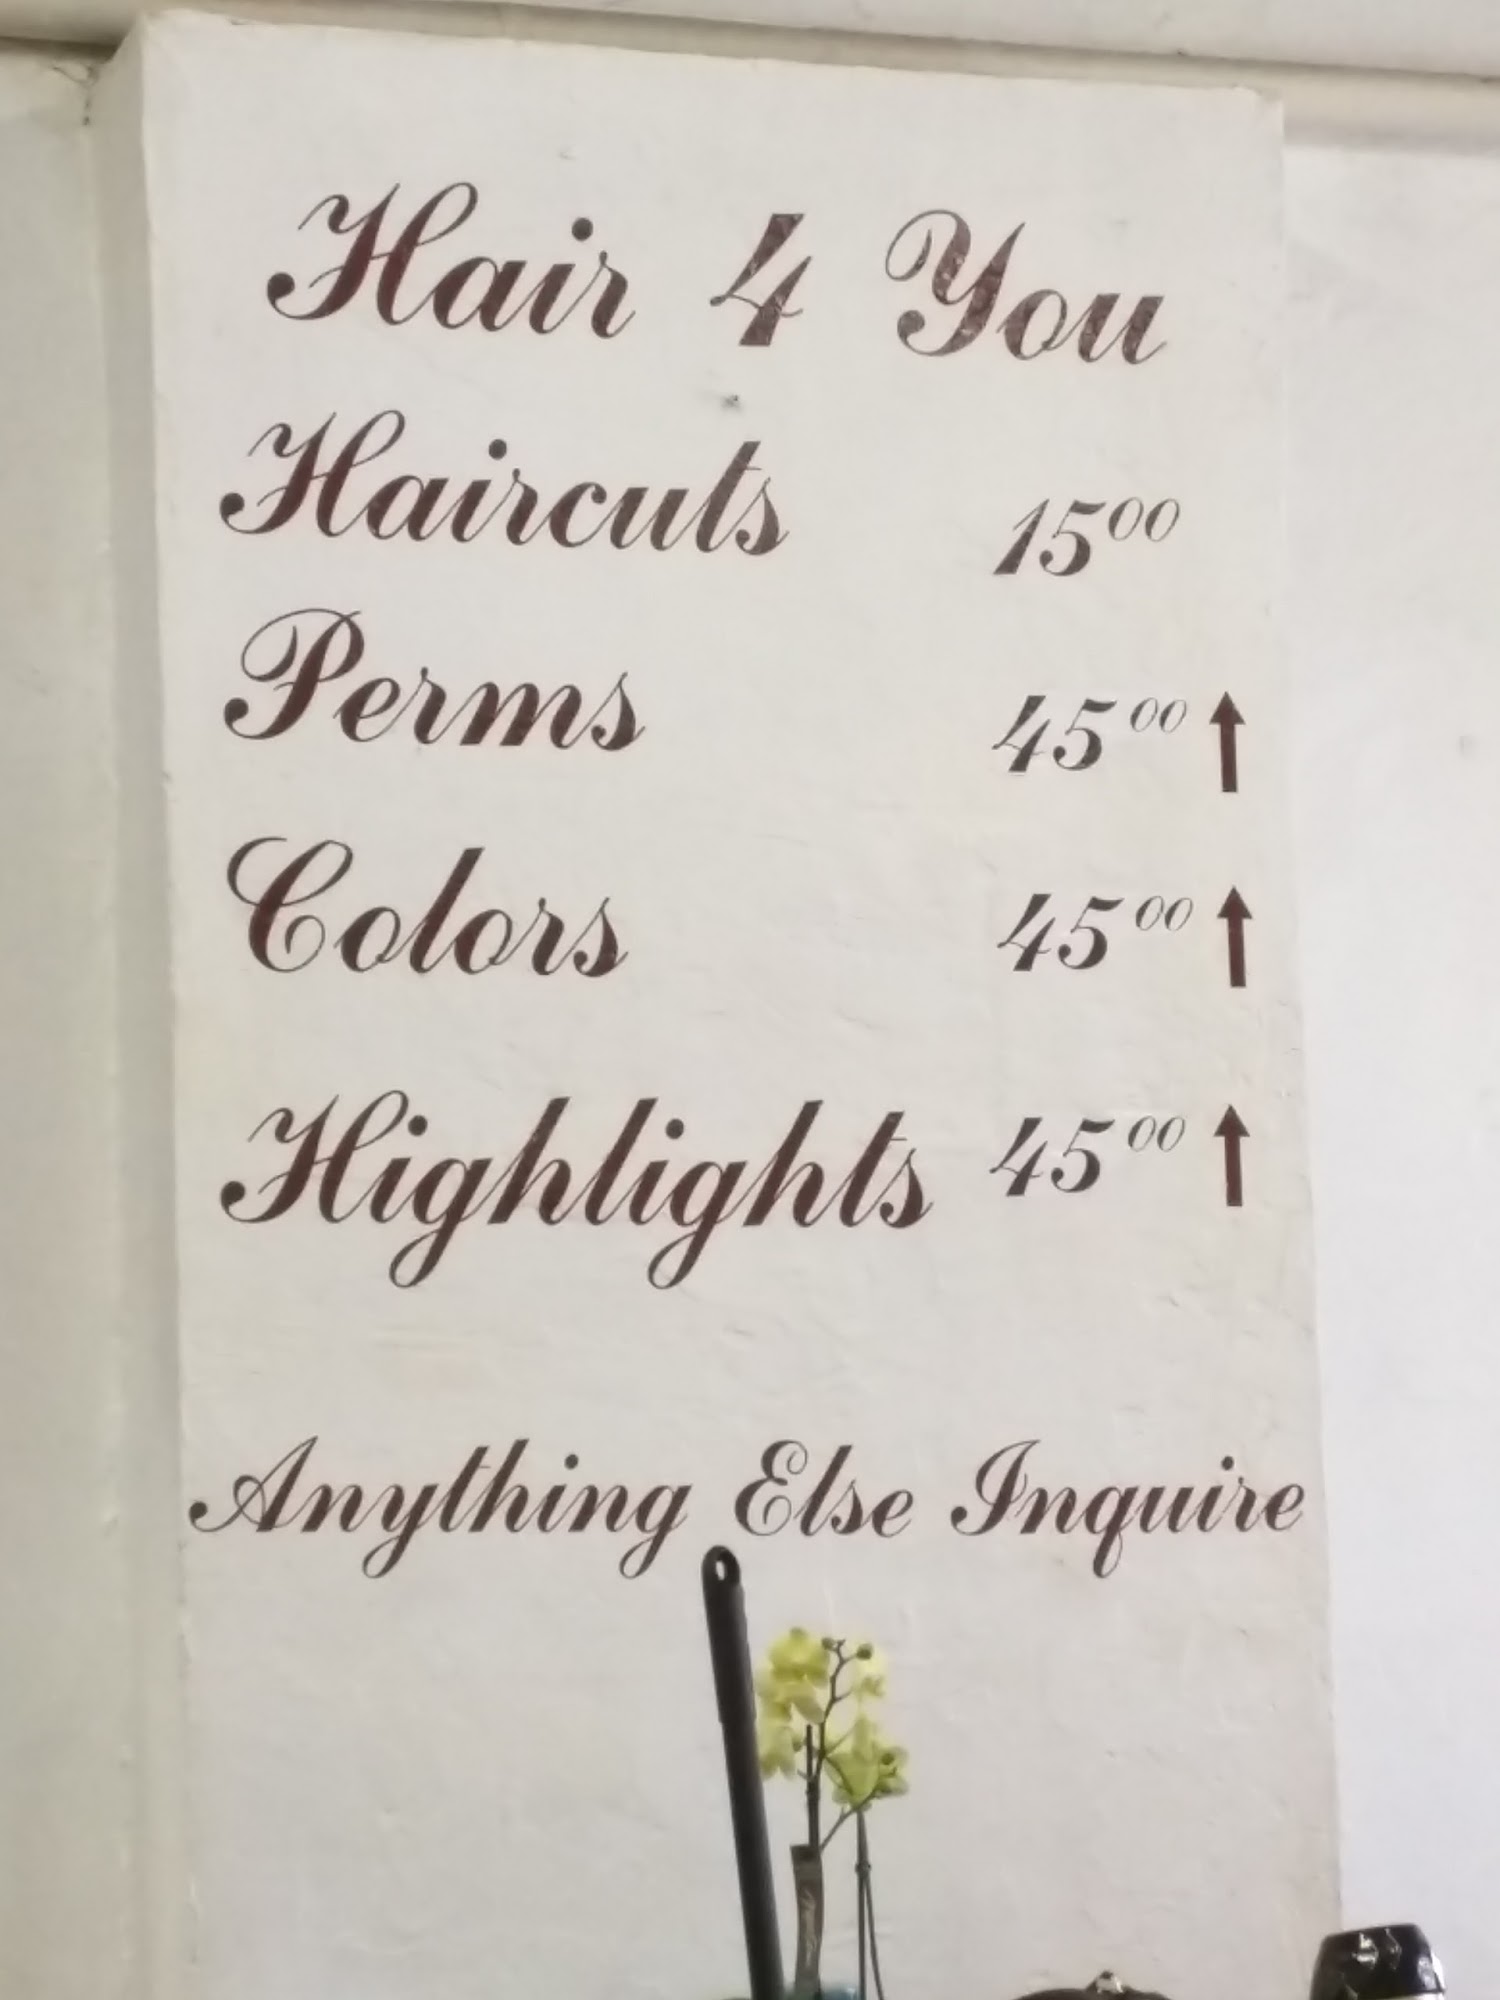 Hair 4 You
Haircuts 15⁰⁰
Perms 45⁰⁰ ↑
Colors 45⁰⁰ ↑
Highlights 45⁰⁰ ↑
Anything Else Inquire